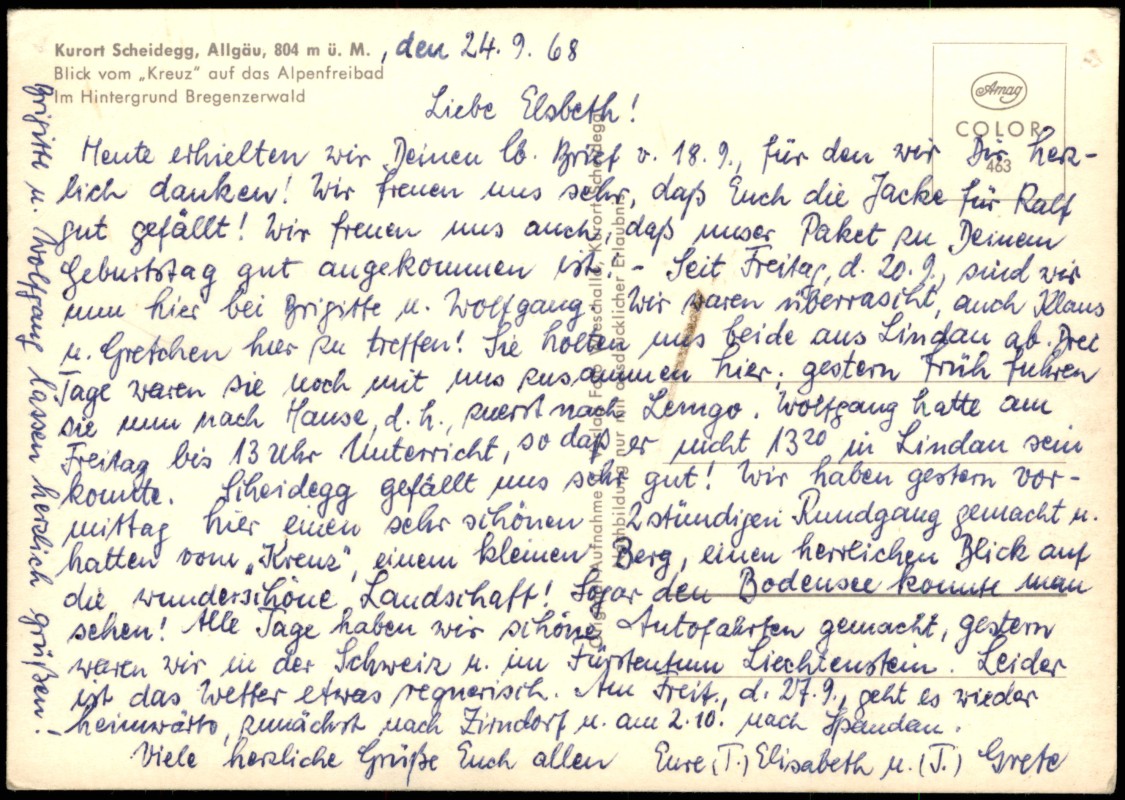 Kurort Scheidegg, Allgäu, 804 m ü. M. , den 24. 9. 68
Blick vom „Kreuz" auf das Alpenfreibad
Im Hintergrund Bregenzerwald
Amag
COLOR
463
Liebe Elsbeth!
Heute erhielten wir Deinen lb. Brief v. 18.9., für den wir Dir herz-
lich danken! Wir freuen uns sehr, daß Euch die Jacke für Ralf
gut gefällt! Wir freuen uns auch, daß unser Paket zu Deinem
Geburtstag gut angekommen ist. - Seit Freitag, d. 20.9., sind wir
nun hier bei Brigitte u. Wolfgang. Wir waren überrascht, auch Klaus
u. Gretchen hier zu treffen! Sie holten uns beide aus Lindau ab. Drei
Tage waren sie noch mit uns zusammen hier; gestern früh fuhren
sie nun nach Hause, d. h., zuerst nach Lemgo. Wolfgang hatte am
Freitag bis 13 Uhr Unterricht, so daß er nicht 13 20 in Lindau sein
konnte. Scheidegg gefällt uns sehr gut! Wir haben gestern vor-
mittag hier einen sehr schönen 2 stündigen Rundgang gemacht u.
hatten vom „Kreuz", einem kleinen Berg, einen herrlichen Blick auf
die wunderschöne Landschaft! Sogar den Bodensee konnte man
sehen! Alle Tage haben wir schöne Autofahrten gemacht, gestern
waren wir in der Schweiz u. im Fürstentum Liechtenstein. Leider
ist das Wetter etwas regnerisch. Am Freit., d. 27.9., geht es wieder
heimwärts, zunächst nach Zirndorf u. am 2.10. nach Spandau.
Viele herzliche Grüße Euch allen Eure (T.) Elisabeth u. (T.) Grete
Brigitte u. Wolfgang lassen herzlich grüßen! -